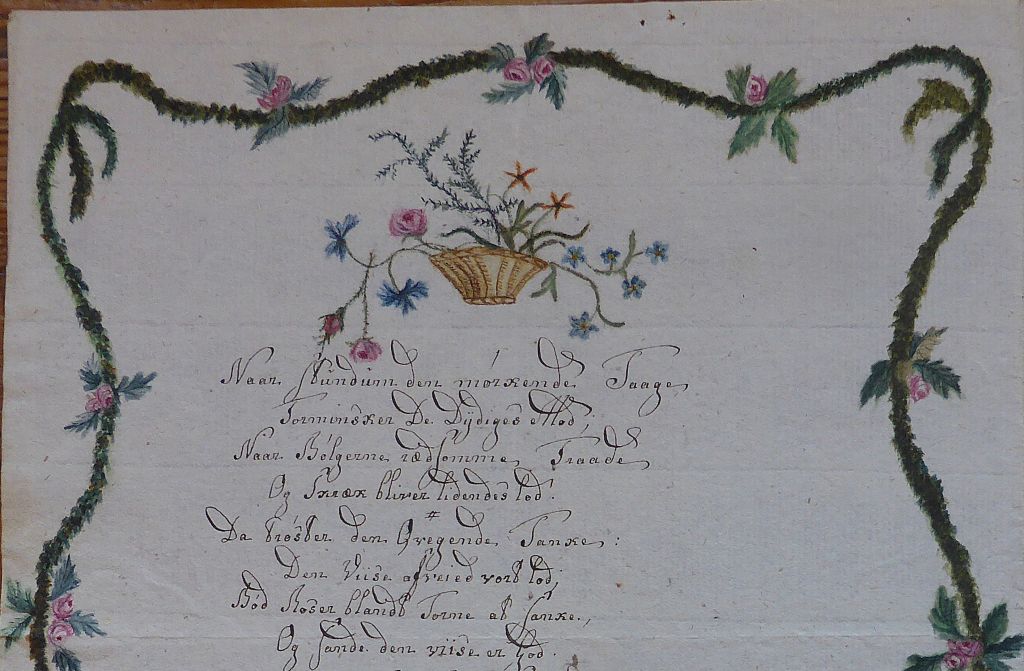 Naar stundum den mørkende Taage,
Forminsker De Dydiges Mod,
Naar Bølgerne rædsomme, Fraade,
Og Skræk bliver lidendes lod.
#
Da trøster den Qvegende, Tanke:
Den Viise afveied vort lod,
Bød Roser blandt Torne at sanke,
Og sande den viise er God.